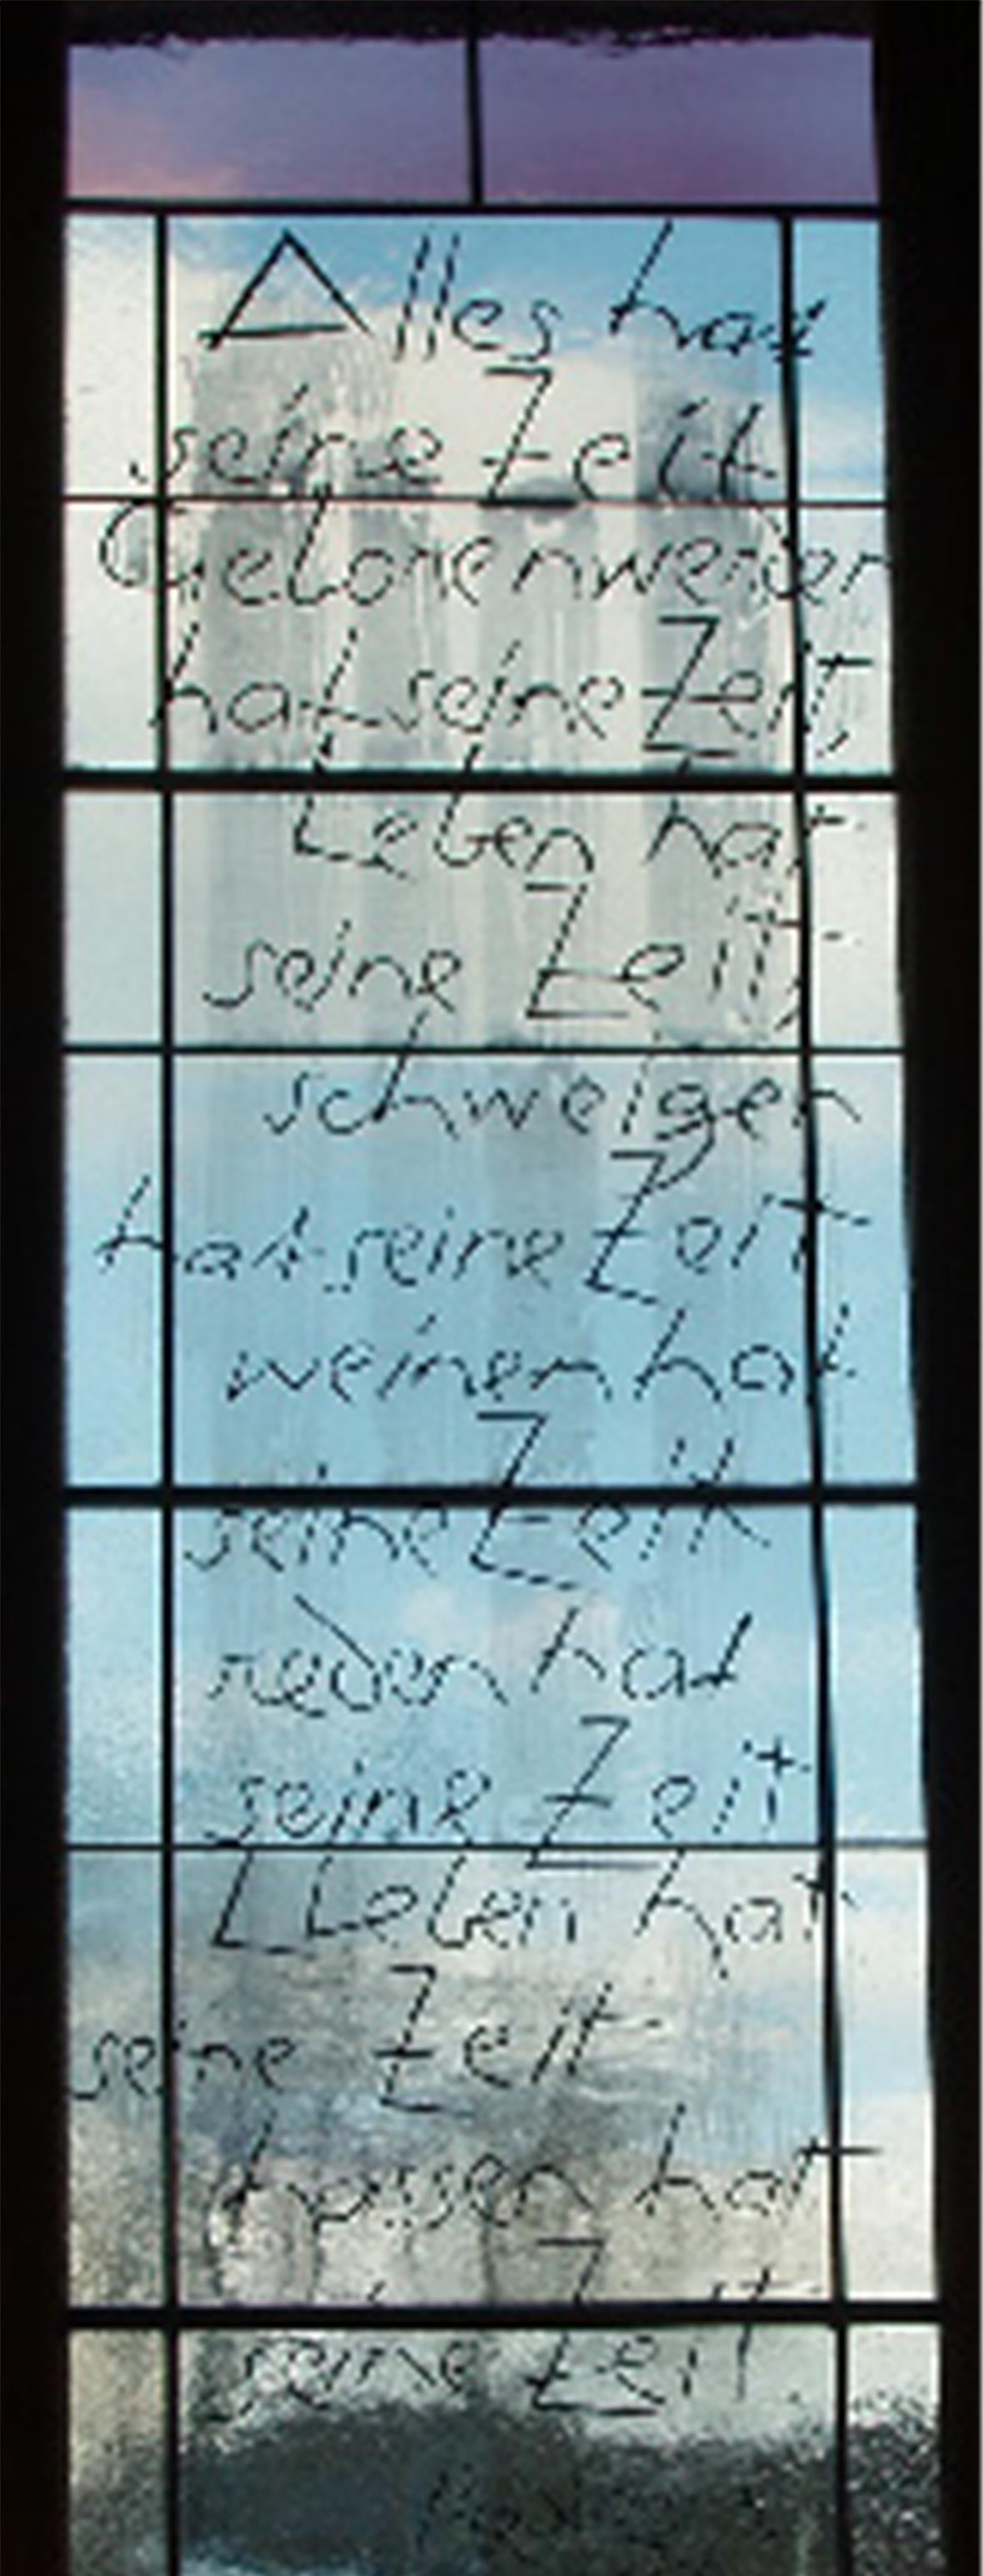 Alles hat
seine Zeit
Geborenwerden
hat seine Zeit,
Leben hat
seine Zeit,
schweigen
hat seine Zeit
weinen hat
seine Zeit
reden hat
seine Zeit
LIeben hat
seine Zeit
hassen hat
seine Zeit.